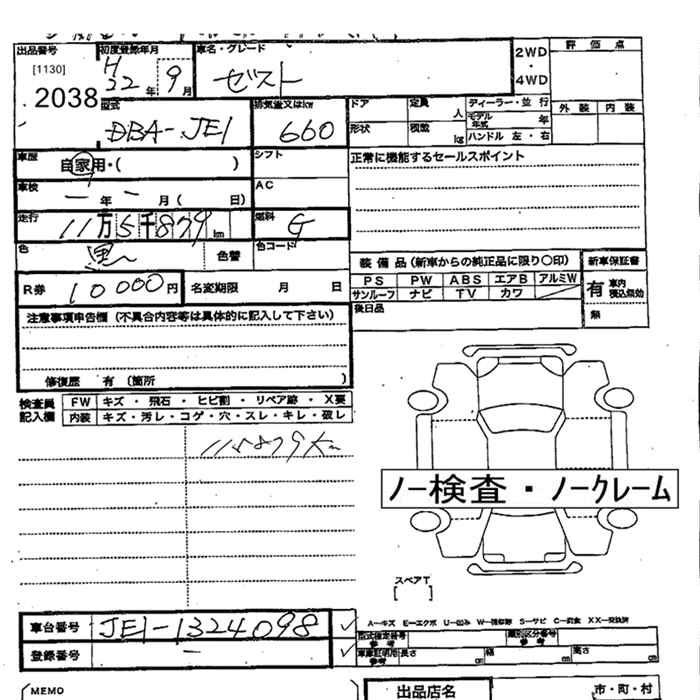 出品番号 初度登録年月 車名・グレード 2WD・4WD 評価点
[1130] H22年 9月 ゼスト
2038
型式 DBA-JE1 排気量又はkw 660 ドア 定員 人 ディーラー・並行 外装 内装
形状 積載 kg モデル年式 年
ハンドル 左・右
車歴 自家用・( ) シフト 正常に機能するセールスポイント
車検 ー年ー月( 日) AC
走行 11万5千879km 燃料 G
色 黒 色替 色コード 装備品(新車からの純正品に限り○印) 新車保証書
PS PW ABS エアB アルミW 有 車内積込無効
R券 10000円 名変期限 月 日 サンルーフ ナビ TV カワ 無
後日品
注意事項申告欄(不具合内容等は具体的に記入して下さい)
修復歴 有 (箇所 )
検査員記入欄 FW キズ・飛石・ヒビ割・リペア跡・X要
内装 キズ・汚レ・コゲ・穴・スレ・キレ・破レ
115879km
ノー検査・ノークレーム
スペアT
[ ]
A-キズ E-エクボ U-凹ミ W-補修跡 S-サビ C-腐食 XX-交換済
車台番号 JE1-1324098 型式指定番号 参考 類別区分番号 参考
登録番号 ー 車庫証明用 参考 長さ cm 幅 cm 高さ cm
MEMO 出品店名 市・町・村